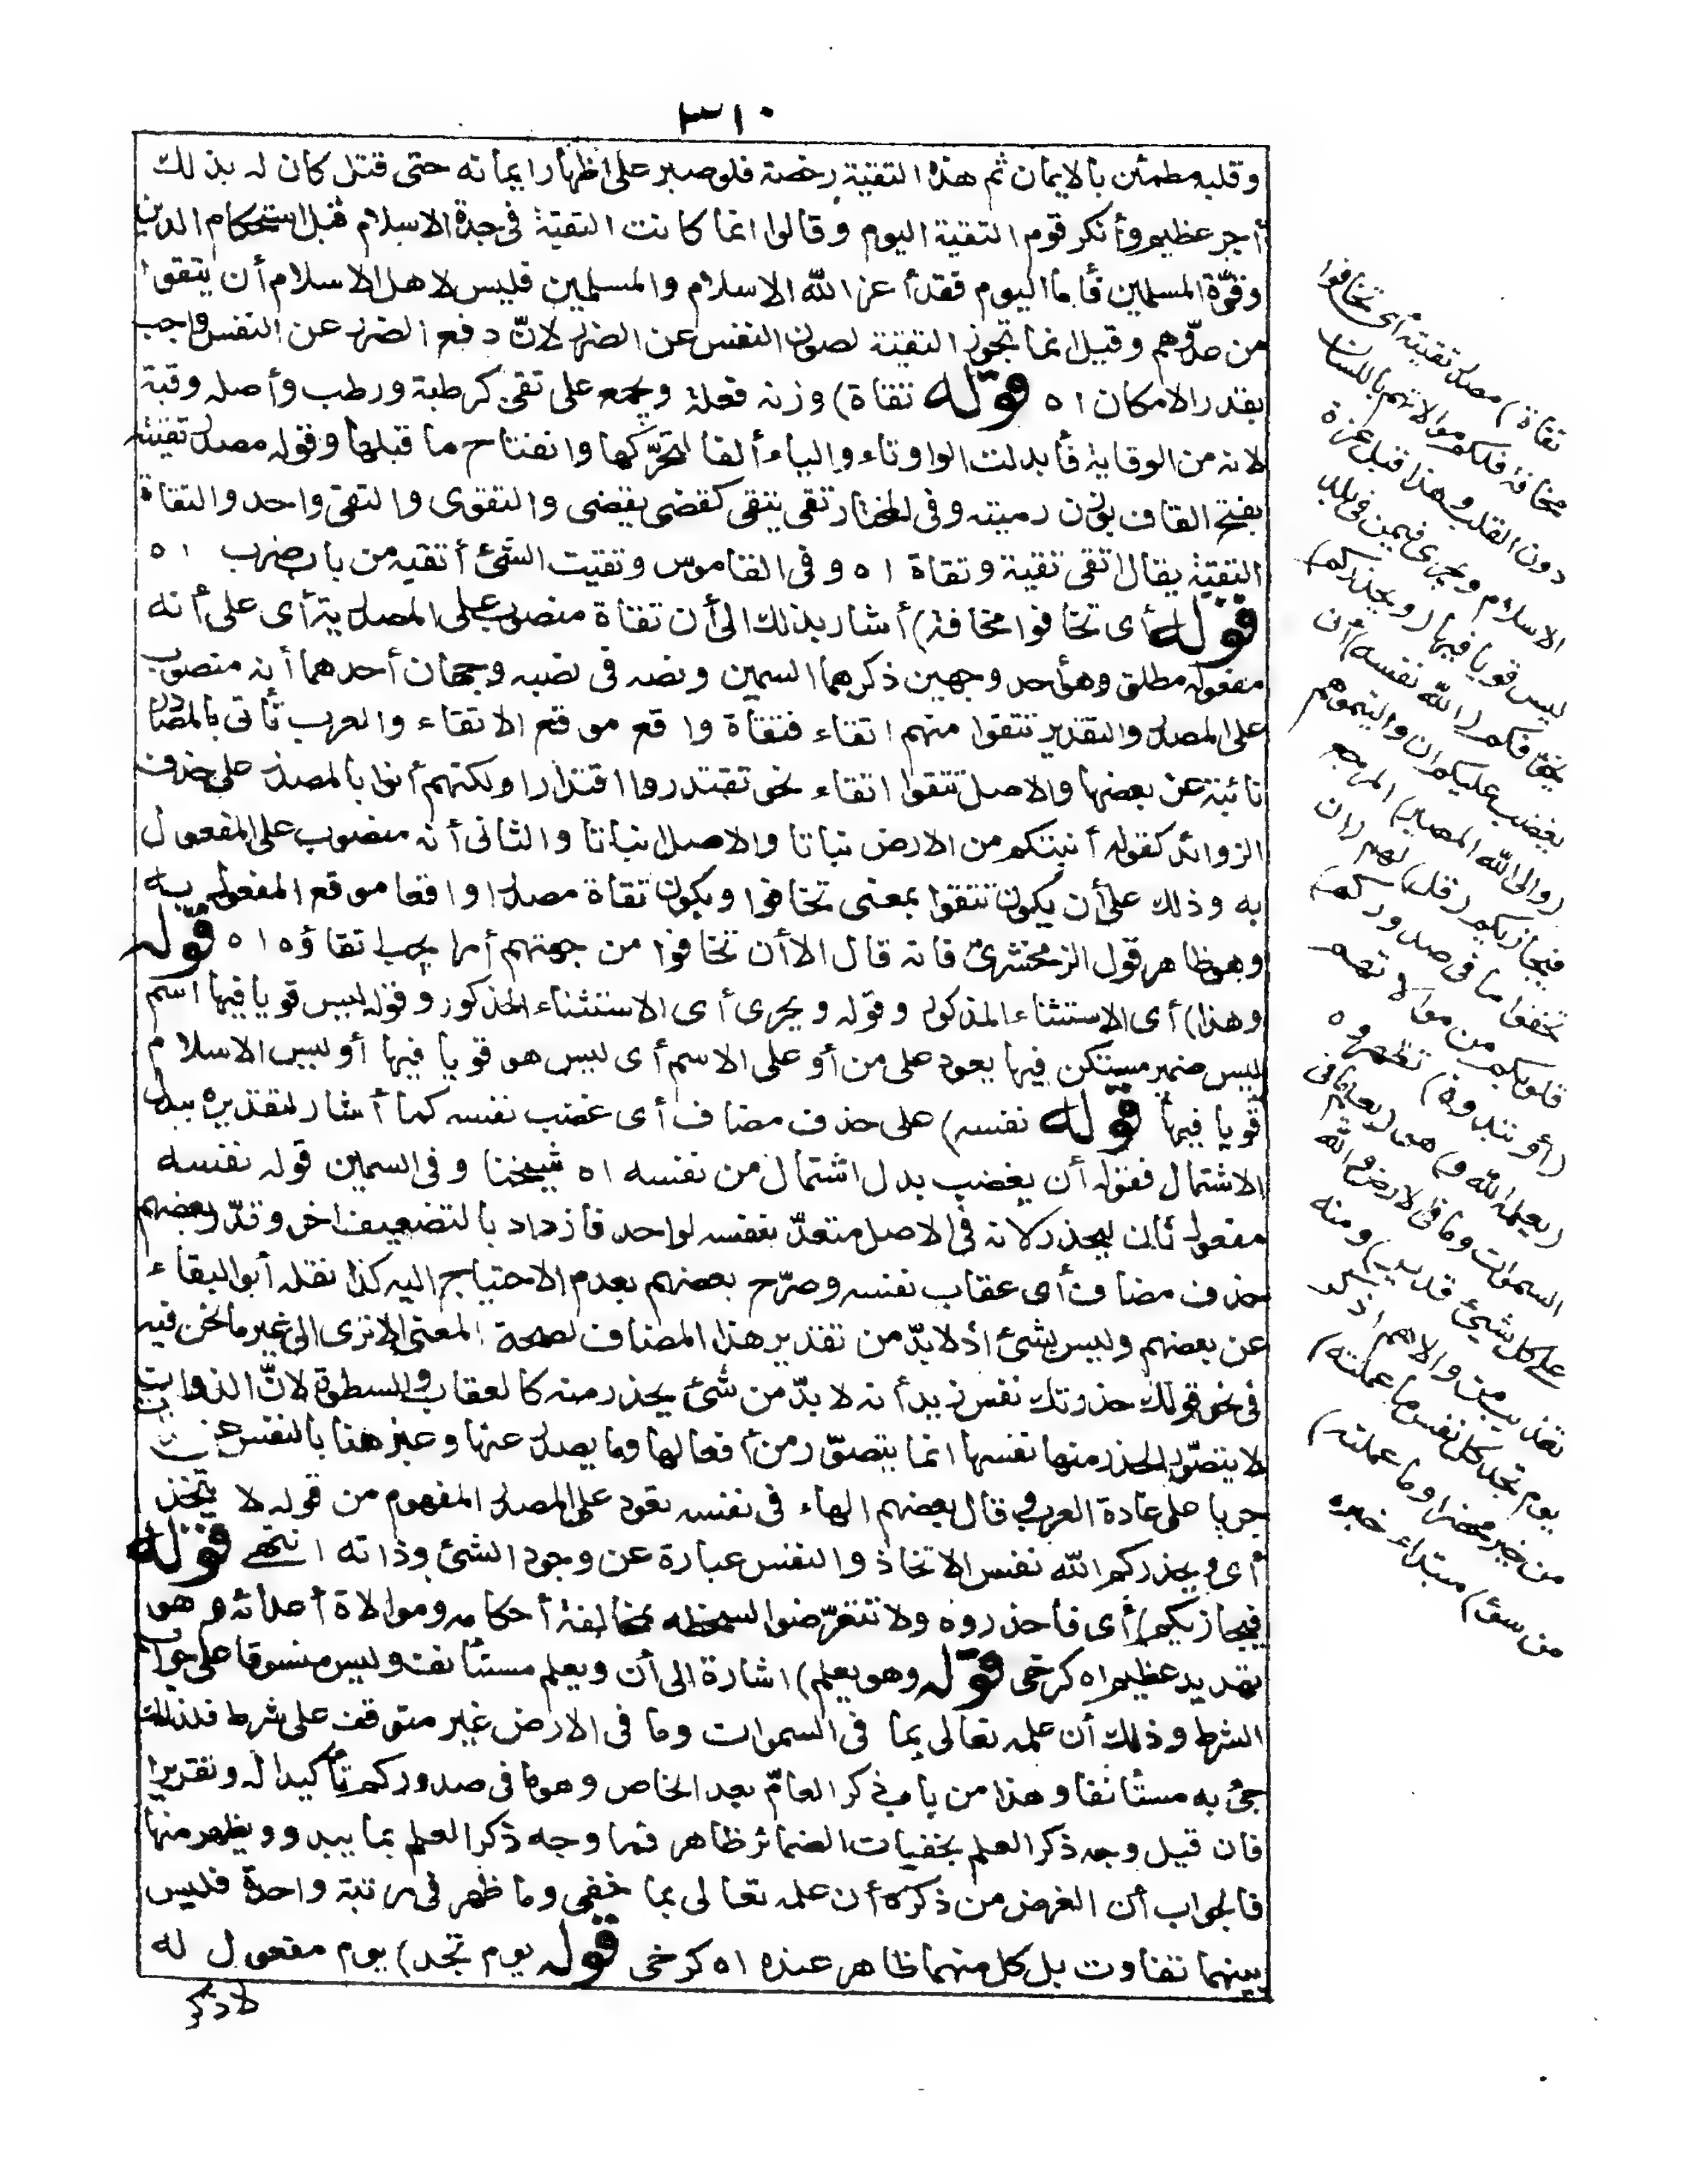 ٣١٠
وقلبه مطمئن بالايمان ثم هذه التقية رخصة فلو صبر على اظهار ايمانه حتى قتل كان له بذلك
أجر عظيم وأنكر قوم التقية اليوم وقالوا انما كانت التقية فى جدة الاسلام قبل استحكام الدين
وقوّة المسلمين فأما اليوم فقد أعز الله الاسلام والمسلمين فليس لاهل الاسلام أن يتقوا
من عدوّهم وقيل انما تجوز التقية لصون النفس عن الضرر لانّ دفع الضرر عن النفس واجب
بقدر الامكان اه قوله تقاة) وزنه فعلة ويجمع على تقى كرطبة ورطب وأصله وقية
لانه من الوقاية فأبدلت الواو تاء والياء ألفا لتحرّكها وانفتاح ما قبلها وقوله مصدر تقيته
بفتح القاف بوزن رميته وفى المختار تقى يتقى كقضى يقضى والتقوى والتقى واحد والتقاة
التقية يقال اتقى تقية وتقاة اه وفى القاموس وتقيت الشئ أتقيه من باب ضرب اه
قوله أى تخافوا مخافة) أشار بذلك الى أن تقاة منصوب على المصدرية أى على أنه
مفعول مطلق وهو أحد وجهين ذكرهما السمين ونصه فى نصبه وجهان أحدهما أنه منصوب
على المصدر والتقدير تتقوا منهم اتقاء فتقاة واقع موقع الاتقاء والعرب تأتى بالمصادر
نائبة عن بعضها والاصل تتقوا اتقاء نحو تقتدروا اقتدارا ولكنهم أتوا بالمصدر على حذف
الزوائد كقوله أنبتكم من الارض نباتا والاصل نباتا والثانى أنه منصوب على المفعول
به وذلك على أن يكون تتقوا بمعنى تخافوا ويكون تقاة مصدرا واقعا موقع المفعول به
وهو ظاهر قول الزمخشرى فانه قال الا أن تخافوا من جهتهم أمرا يجب اتقاؤه اه قوله
وهذا) أى الاستثناء المذكور وقوله ويجرى أى الاستثناء المذكور وقوله ليس قويا فيها اسم
ليس ضمير مستكن فيها يعود على من أو على الاسم أى ليس هو قويا فيها أو ليس الاسلام
قويا فيها قوله نفسه) على حذف مضاف أى غضب نفسه كما أشار لتقديره ببدل
الاشتمال فقوله أن يغضب بدل اشتمال من نفسه اه شيخنا وفى السمين قوله نفسه
مفعول ثان ليحذر لانه فى الاصل متعدّ بنفسه لواحد فازداد بالتضعيف اخر وقدّر بعضهم
حذف مضاف أى عقاب نفسه وصرّح بعضهم بعدم الاحتياج اليه كذا نقله أبو البقاء
عن بعضهم وليس بشئ اذ لا بدّ من تقدير هذا المضاف لصحة المعنى الا ترى الى غير ما نحن فيه
فى نحو قولك حذرتك نفس زيد أنه لا بدّ من شئ يحذر منه كالعقاب والسطوة لانّ الذوات
لا يتصوّر الحذر منها نفسها انما يتصوّر من أفعالها وما يصدر عنها وعبر هنا بالنفس عن الذات
جريا على عادة العرب وقال بعضهم الهاء فى نفسه تعود على المصدر المفهوم من قوله لا يتخذ
أى ويحذركم الله نفس الاتخاذ والنفس عبارة عن وجود الشئ وذاته انتهى قوله
فيجازيكم) أى فاحذروه ولا تتعرّضوا لسخطه بمخالفة أحكامه وموالاة أعدائه وهو
تهديد عظيم اه كرخى قوله وهو يعلم) اشارة الى أن ويعلم مستأنف وليس منسوقا على جواب
الشرط وذلك أن علمه تعالى بما فى السموات وما فى الارض غير متوقف على شرط فلذلك
جئ به مستأنفا وهذا من باب ذكر العامّ بعد الخاص وهو ما فى صدوركم تأكيدا له وتقريرا
فان قيل وجه ذكر العلم بخفيات الضمائر ظاهر فما وجه ذكر العلم بما يبدو ويظهر منها
فالجواب أن الغرض من ذكره أن علمه تعالى بما خفى وما ظهر فى مرتبة واحدة فليس
بينهما تفاوت بل كل منهما ظاهر عنده اه كرخى قوله يوم تجد) يوم مفعول له
لاذكر
تقاة) مصدر تقيته أى تخافوا
مخافة فلكم موالاتهم باللسان
دون القلب وهذا قبل عزة
الاسلام ويجرى فيمن فى بلد
ليس قويا فيها (ويحذركم)
يخوّفكم (الله نفسه) أن
يغضب عليكم ان واليتموهم
(والى الله المصير) المرجع
فيجازيكم (قل) لهم (ان
تخفوا ما فى صدوركم)
قلوبكم من موالاتهم
(أو تبدوه) تظهروه
(يعلمه الله و) هو (يعلم ما فى
السموات وما فى الارض والله
على كل شئ قدير) ومنه
تعذيب من والاهم اذكر
يوم تجد كل نفس ما عملته)
من خير محضرا وما عملته)
من سوء) مبتداء خبره